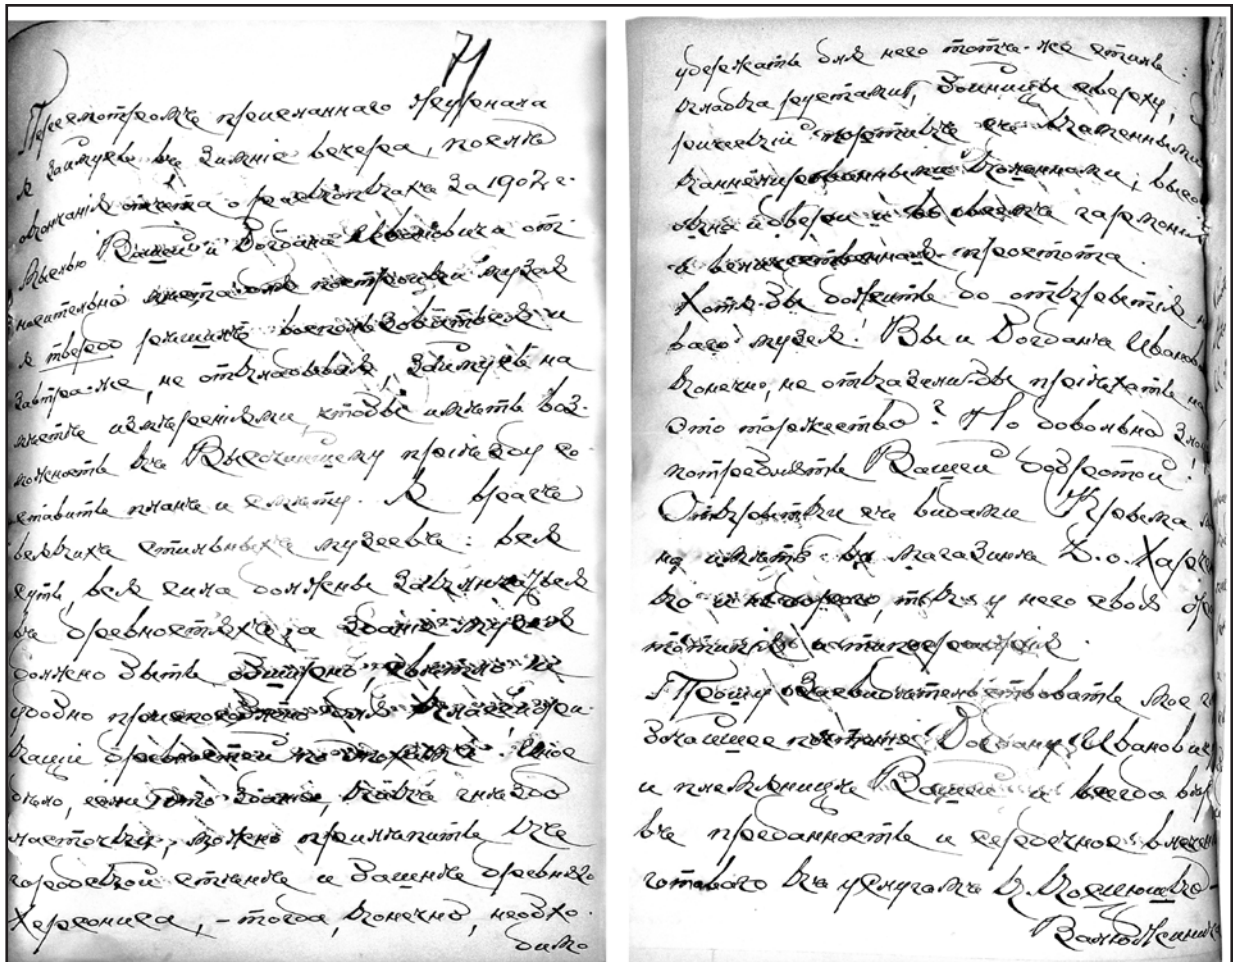 71
Пересмотромъ присланнаго журнала
я займусь въ зимніе вечера, послѣ
окончанія отчета о раскопкахъ за 1907 г.
Мыслью Вашей и Богдана Ивановича от-
носительно мѣста постройки музея
я твердо рѣшилъ воспользоваться и
завтра-же, не откладывая, займусь на
мѣстѣ измѣреніями, чтобы имѣть воз-
можность къ Высочайшему пріѣзду со-
ставить планъ и смѣту. Я врагъ
всякихъ стильныхъ музеевъ: вся
суть, вся сила должны заключаться
въ древностяхъ, а зданіе музея
должно быть обширно, свѣтло и
удобно приспособлено для
древностей по эпохамъ. Иное
дѣло, если это зданіе, какъ гнѣздо
ласточки, можно прилѣпить къ
городской стѣнѣ и башнѣ древняго
Херсониса, - тогда, конечно, необхо-
димо
удержать для него тотъ-же стиль:
кладка рустами, бойницы сверху,
портикъ съ каменными
каннелированными колоннами,
окна и двери и во всемъ гармонія
и величественная простота.
Хотя-бы дожить до открытія
музея! Вы и Богданъ Иванов
конечно, не отказались-бы пріѣхать на
это торжество? Но довольно
Вашей добротой!
Открытки съ видами Крыма
въ магазинѣ
и недорого, такъ у него своя
Прошу засвидѣтельствовать мое
почтеніе Богдану Иванович
и племянницѣ Вашей и всегда
въ преданность и сердечное влечен
готоваго къ услугамъ К. Косцюшко-
Валюжинича